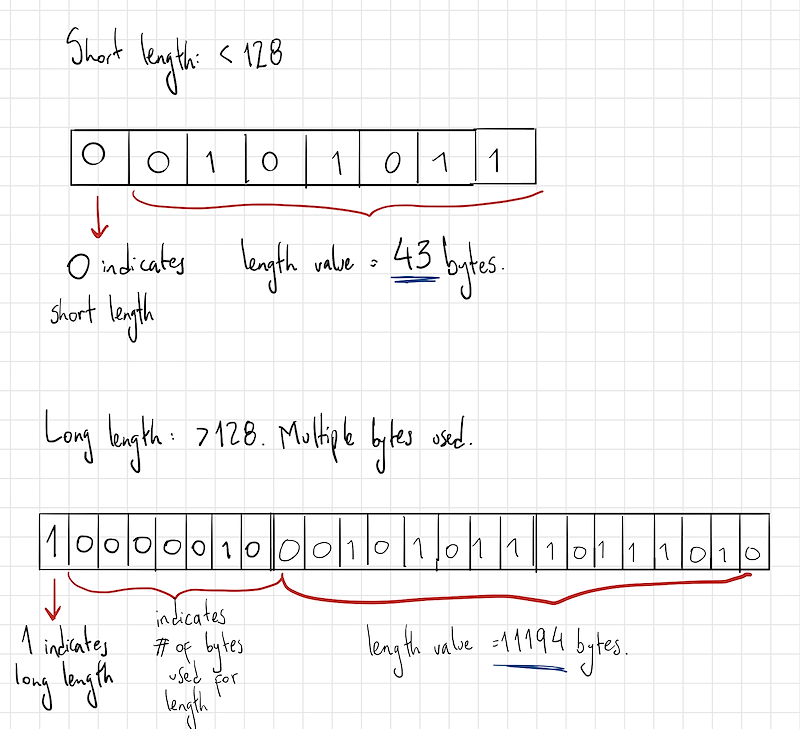 Short length: < 128
0 0 1 0 1 0 1 1
0 indicates
short length
length value = 43 bytes.
Long length: >128. Multiple bytes used.
1 0 0 0 0 0 1 0 0 0 1 0 1 0 1 1 1 0 1 1 1 0 1 0
1 indicates
long length
indicates
# of bytes
used for
length
length value =11194 bytes.